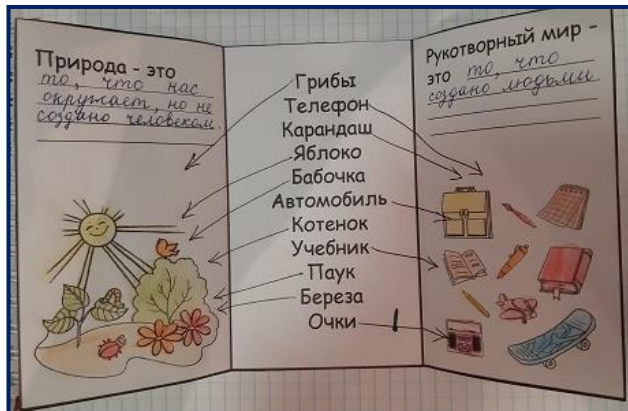 Природа - это
то, что нас
окружает, но не
создано человеком.
Грибы
Телефон
Карандаш
Яблоко
Бабочка
Автомобиль
Котенок
Учебник
Паук
Береза
Очки
Рукотворный мир -
это то, что
создано людьми.